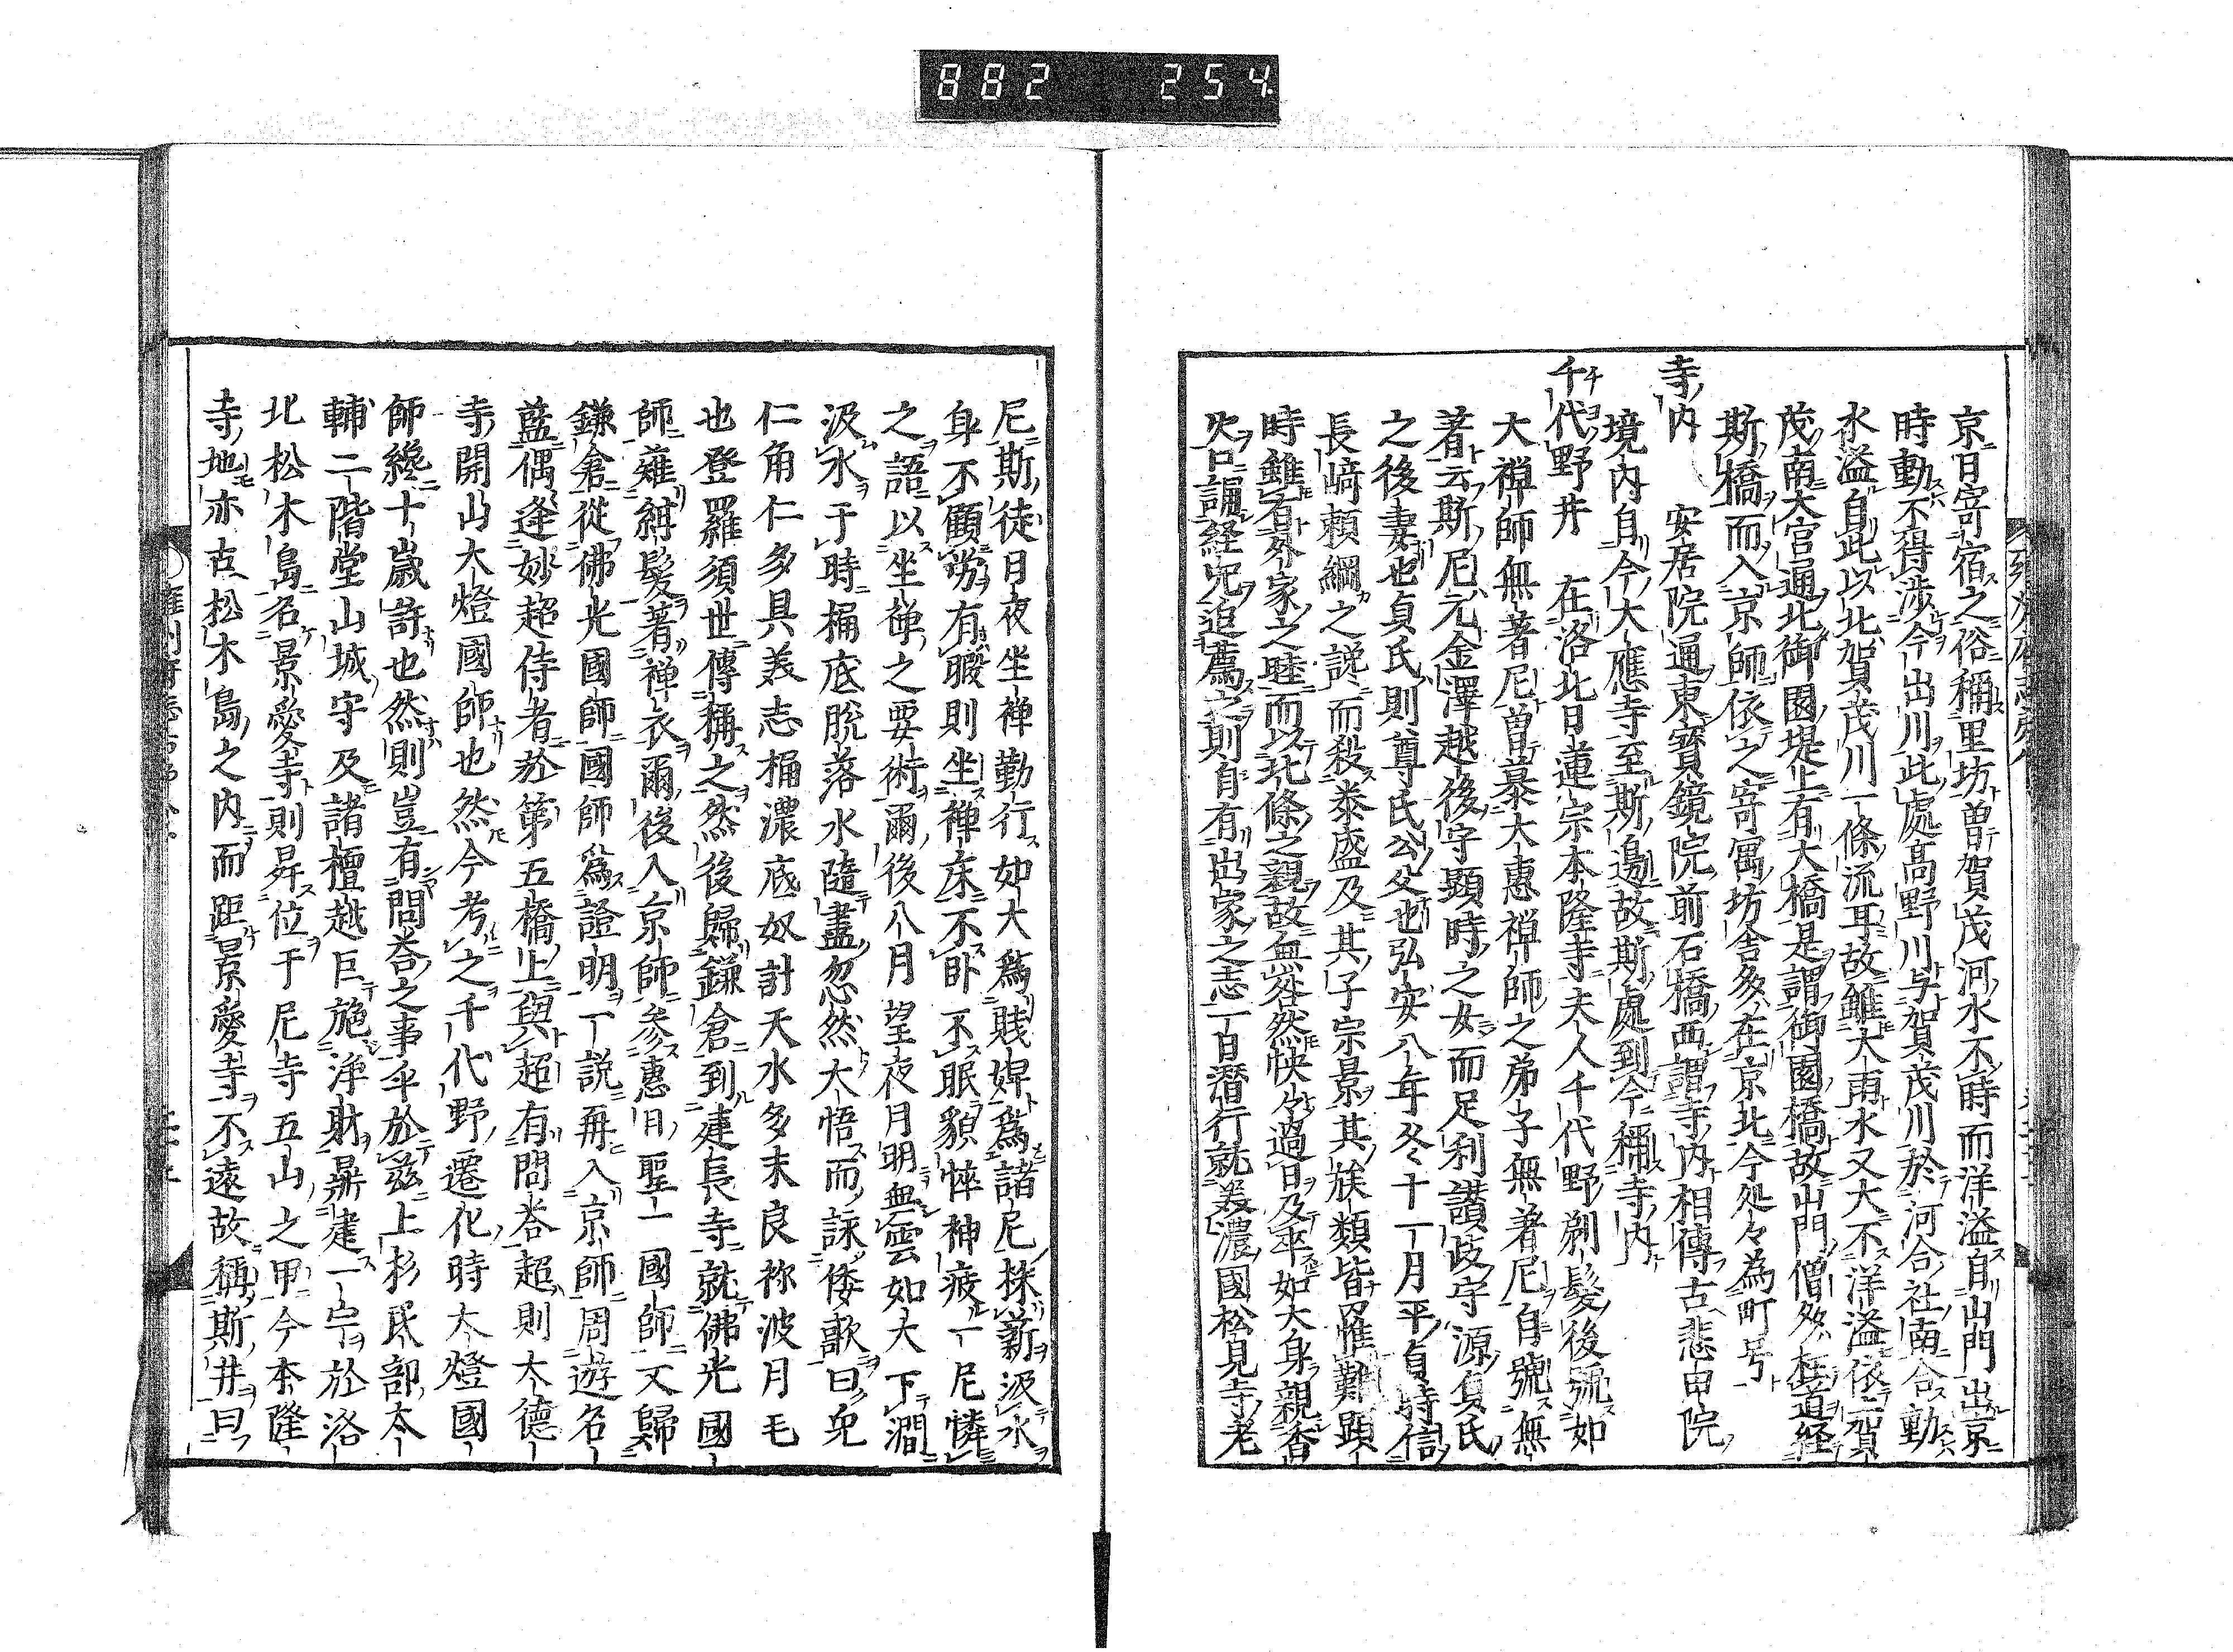 882 254
京日寄宿之俗稱里坊曽賀茂河水不時而洋溢自出門出京
時動不得渉今出川此處髙野川与賀茂川於河合社南合動
水溢自此以北賀茂川一條流耳故雖大雨水又大不洋溢依賀
茂南大宮通北御園堤上有大橋是謂御園橋故出門僧多枉道経
斯橋而入京師依之寄寓坊舎多在京北今処々為町号
寺内 安居院通東寳鏡院前石橋西謂寺内相傳古悲田院
境内自今大應寺至斯邊故斯處到今稱寺内
千代野井 在洛北日蓮宗本隆寺夫人千代野剃髪後號如
大禅師無著尼曽慕大惠禅師之弟子無著尼自號無
著云斯尼元金澤越後守顕時之女而足利讃岐守源貞氏
之後妻也貞氏則尊氏公父也弘安八年冬十一月平貞時信
長﨑頼綱之説而殺泰盛及其子宗景其族類皆罹難顕
時雖有外家之睦而以北條之親故無咎然怏々過日及卒如大身親香
火口誦経呪追薦之則自有出家之志一日潜行就美濃國松見寺老
尼斯徒日夜坐禅勤行如大為賤婢為諸尼採薪汲水
身不顧労有暇則坐禅床不卧不眠貌悴神疲一尼憐
之語以坐禅之要術爾後八月望夜月明無雲如大下澗
汲水于時桶底脱落水隨盡忽然大悟而詠倭歌曰免
仁角仁多具美志桶濃底奴計天水多末良祢波月毛
也登羅須世傳稱之然後歸鎌倉到建長寺就佛光國
師薙紺髪著禅衣爾後入京師参惠日聖一國師又歸
鎌倉從佛光國師國師為證明一説再入京師周遊名
藍偶逢妙超侍者於第五橋上與超有問答超則大德
寺開山大燈國師也然今考之千代野遷化時大燈國
師纔十歳許也然則豈有問答之事乎於茲上杉民部大
輔二階堂山城守及諸檀越巨施淨財鼎建一宇於洛
北松木島名景愛寺則昇位于尼寺五山之甲今本隆
寺地亦古松木島之内而距景愛寺不遠故稱斯井曰